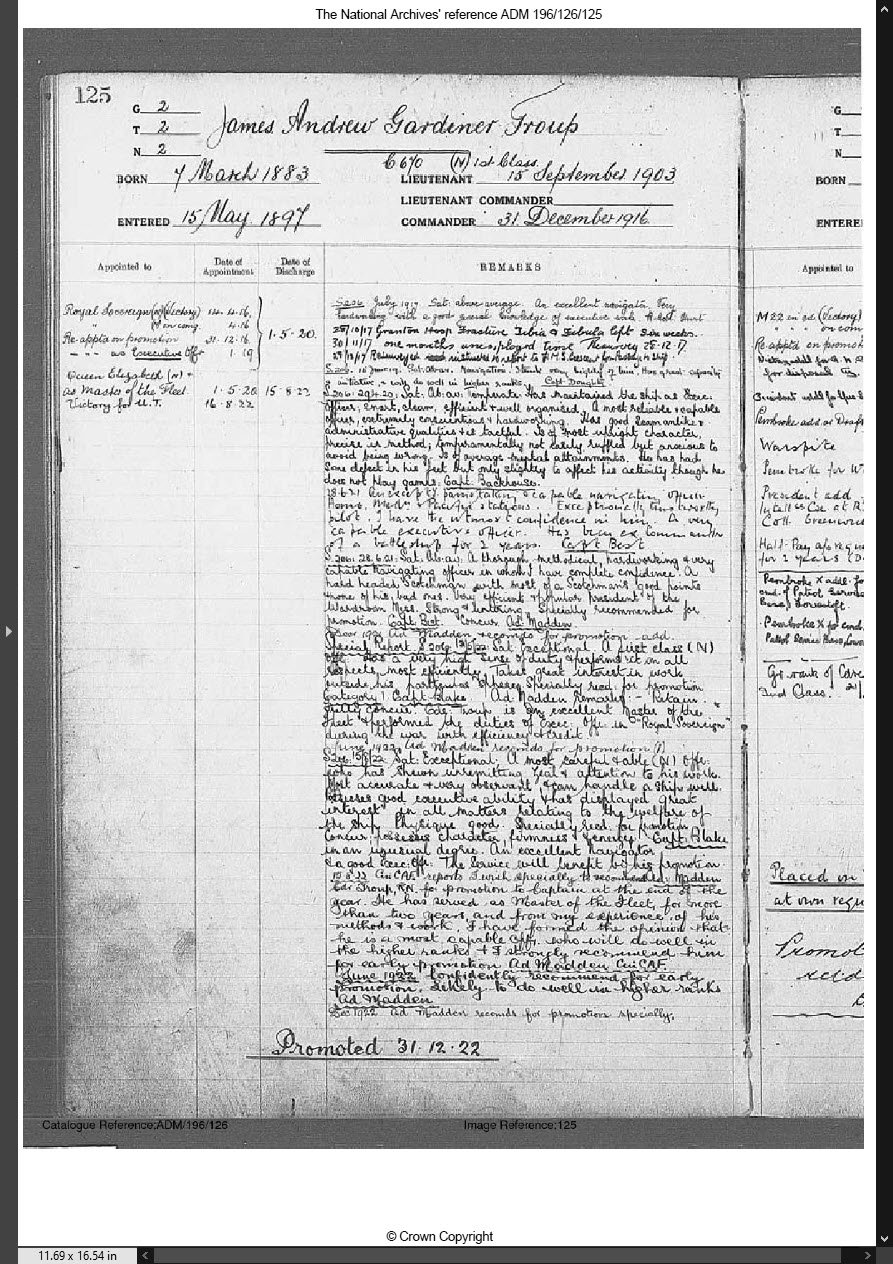 The National Archives' reference ADM 196/126/125
125
G 2
T 2
N 2
James Andrew Gardiner Troup
BORN 7 March 1883
ENTERED 15 May 1897
(N) 1st Class
LIEUTENANT 15 September 1903
LIEUTENANT COMMANDER
COMMANDER 31 December 1916
G
T
N
BORN
ENTERE
Appointed to
Date of Appointment
Date of Discharge
REMARKS
Appointed to
Royal Sovereign (N) (Victory) 14.4.16
" on comg. 4.16
Re-apptd on promotion 31.12.16
as Executive Offr 1.19
1.5.20
Queen Elizabeth (N) &
as Master of the Fleet 1.5.20 15.8.22
Victory for U.T. 16.8.22
S206. July 1917 Sat: above average. An excellent navigator. Very
hardworking with a good general knowledge of executive
25/10/17 Granton Hosp. Fracture Tibia & Fibula left. Six weeks.
30/11/17 one months unemployed time. 25.12.17.
& initiative, & will do well in higher ranks. Capt. Doughty
S.206. 29.4.20. Sat. Ab: av: Temperate Has maintained the ship as Exec:
Officer, smart, clean, efficient & well organised. A most reliable & capable
officer, extremely conscientious & hardworking. Has good seamanlike &
administrative qualities & is tactful. Is of most upright character,
precise in method; temperamentally not easily ruffled but anxious to
avoid being wrong. Is of average physical attainments. He has had
some defect in his feet but only slightly to affect his activity though he
does not play games. Capt. Backhouse.
painstaking & capable navigating officer
Home, Medn & Pacific stations. Exceptionally trustworthy
pilot. I have the utmost confidence in him. A very
capable executive officer. Has been ex. Commander
of a battleship for 2 years. Capt Best
S.206. 28.6.21. Sat. Ab: av. A thorough, methodical, hardworking & very
capable Navigating officer in whom I have complete confidence. A
hard headed Scotchman with most of a Scotchman's good points
& none of his bad ones. Very efficient & popular president of the
Wardroom Mess. Strong & untiring. Specially recommended for
promotion. Capt. Best. Concur Ad: Madden
1921 Ad Madden recomds for promotion
Special Report S.206 Sat Exceptional. A first class (N)
offr. Has a very high sense of duty & performs it in all
respects most efficiently. Takes great interest in work
outside his particular sphere. Specially recd. for promotion
Category 1. Capt Blake. Ad Madden Remarks - "Retain.
Fully concur. Cdr. Troup is an excellent Master of the
Fleet & performed the duties of Exec. Offr in "Royal Sovereign"
during the war with efficiency & credit
June 1922 Ad Madden recomds for promotion
S206. 15/8/22 Sat: Exceptional. A most careful & able (N) Offr.
who has shewn unremitting zeal & attention to his work.
Most accurate & very observant, & can handle a ship well.
Possesses good executive ability & has displayed great
interest in all matters relating to the welfare of
the ship. Physique good. Specially recd. for promotion
Concur: possesses character, firmness & energy Capt. Blake
in an unusual degree. An excellent navigator
& a good Exec: Offr. The Service will benefit by his promotion.
CinCAF reports I wish specially to recommend Madden
Cdr Troup, R.N. for promotion to Captain at the end of the
year. He has served as Master of the Fleet, for more
than two years and from my experience of his
methods & work, I have formed the opinion that
he is a most capable offr, who will do well in
the higher ranks & I strongly recommend him
for early promotion Ad Madden CinCAF.
June 1922 Confidently recommend for early
promotion. Likely to do well in higher ranks
Ad Madden
Dec 1922 Ad Madden recomds for promotion specially.
Promoted 31.12.22
M 22 in cd (Victory)
" " on com
Re-apptd on promot
Pembroke add
Warspite
Pembroke for W
President add
Coll. Greenwich
Half-Pay
for 2 years
Pembroke X add. fo
Base, Lowestoft.
Pembroke X
Patrol Service Base, Lowes
2nd Class.
Placed on
at own requ
Promot
Catalogue Reference:ADM/196/126
Image Reference:125
© Crown Copyright
11.69 x 16.54 in